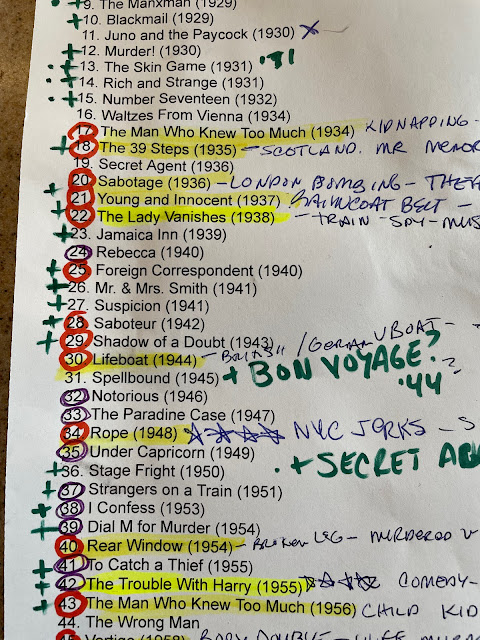 9. The Manxman (1929)
+10. Blackmail (1929)
11. Juno and the Paycock (1930) X
+12. Murder! (1930)
+13. The Skin Game (1931) '31
+14. Rich and Strange (1931)
+15. Number Seventeen (1932)
16. Waltzes From Vienna (1934)
17. The Man Who Knew Too Much (1934) KIDNAPPING -
+18. The 39 Steps (1935) - SCOTLAND. MR MEMOR
19. Secret Agent (1936)
+20. Sabotage (1936) - LONDON BOMBING - THE
+21. Young and Innocent (1937) RAINCOAT BELT -
22. The Lady Vanishes (1938) - TRAIN - SPY - MUS
+23. Jamaica Inn (1939)
24. Rebecca (1940)
+25. Foreign Correspondent (1940)
+26. Mr. & Mrs. Smith (1941)
+27. Suspicion (1941)
+28. Saboteur (1942)
+29. Shadow of a Doubt (1943)
30. Lifeboat (1944) - BRITISH / GERMAN UBOAT -
31. Spellbound (1945) + BON VOYAGE? '44 ?
32. Notorious (1946)
33. The Paradine Case (1947)
34. Rope (1948) NYC JERKS - S
35. Under Capricorn (1949)
+36. Stage Fright (1950) . + SECRET
+37. Strangers on a Train (1951)
+38. I Confess (1953)
+39. Dial M for Murder (1954)
40. Rear Window (1954) - BROKEN LEG - MURDERED
+41. To Catch a Thief (1955)
+42. The Trouble With Harry (1955) COMEDY -
+43. The Man Who Knew Too Much (1956) CHILD KID
44. The Wrong Man
45. Vertigo (1958) BODY DOUBLE